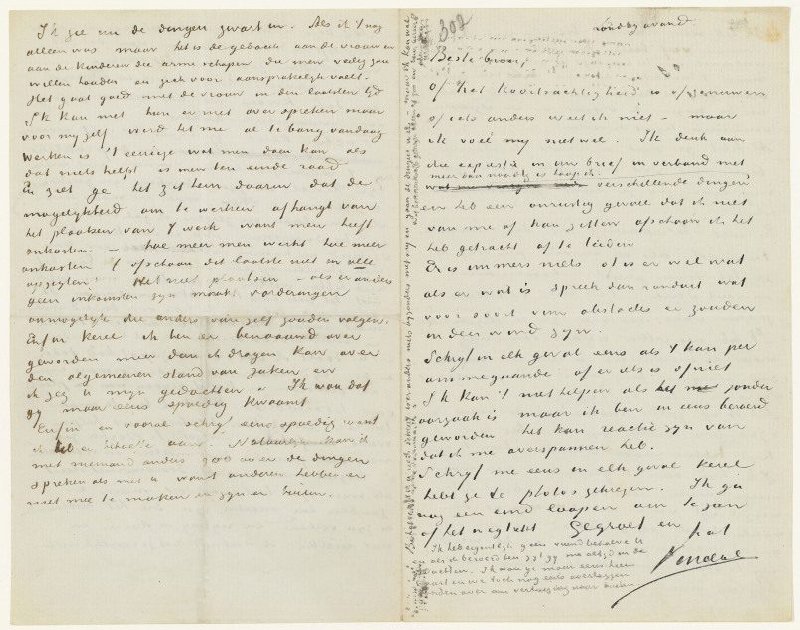 Ik zie nu de dingen zwart in. Als ik 't nog
alleen was maar het is de gedacht aan de vrouw en
aan de kinderen die arme schapen die men veilig zou
willen houden en zich voor aansprakelijk voelt.
Het gaat goed met de vrouw in den laatsten tijd
Ik kan met hun er niet over spreken maar
voor mij zelf werd het me al te bang vandaag
Werken is 't eenige wat men doen kan als
dat niets helpt is men ten einde raad
En ziet ge het zit hem daarin dat de
mogelijkheid om te werken afhangt van
het plaatsen van 't werk want men heeft
onkosten – hoe meer men werkt hoe meer
onkosten (ofschoon dit laatste niet in alle
opzigten) Het niet plaatsen – als er anders
geen inkomsten zijn maakt vorderingen
onmogelijk die anders van zelf zouden volgen.
Enfin kerel ik ben er benaauwd over
geworden meer dan ik dragen kan over
den algemeenen stand van zaken en
ik zeg u mijn gedachten. Ik wou dat
gij maar eens spoedig kwaamt
Enfin en vooral schrijf eens spoedig want
ik heb er behoefte aan Natuurlijk kan ik
met niemand anders over de dingen
spreken als met u want anderen hebben er
niet mee te maken en zijn er buiten.
307
zondag avond
Beste broer,
Of het koortsachtigheid is of zenuwen
of iets anders weet ik niet – maar
ik voel mij niet wel. Ik denk aan
die expressie in uw brief in verband met
meer dan noodig is hoop ik
verschillende dingen
en heb een onrustig gevoel dat ik niet
van me af kan zetten ofschoon ik het
heb getracht af te leiden
Er is immers niets of is er wel wat
als er wat is spreek dan ronduit wat
voor soort van obstacles er zouden
in den wind zijn.
Schrijf in elk geval eens als 't kan per
ommegaande of er iets is of niet
Ik kan 't niet helpen als het zonder
oorzaak is maar ik ben in eens beroerd
geworden het kan reactie zijn van
dat ik me overspannen heb.
Schrijf me eens in elk geval kerel
hebt ge de photos gekregen. Ik ga
nog een eind loopen om te zien
of het wegtrekt Gegroet en
t.à t.
Vincent
Ik heb eigentlijk geen vriend behalve U
als ik beroerd ben zijt gij me altijd in de
gedachten. Ik wou ge maar eens hier
waart en we toch nog eens overlegden
onder over een verhuizing naar buiten